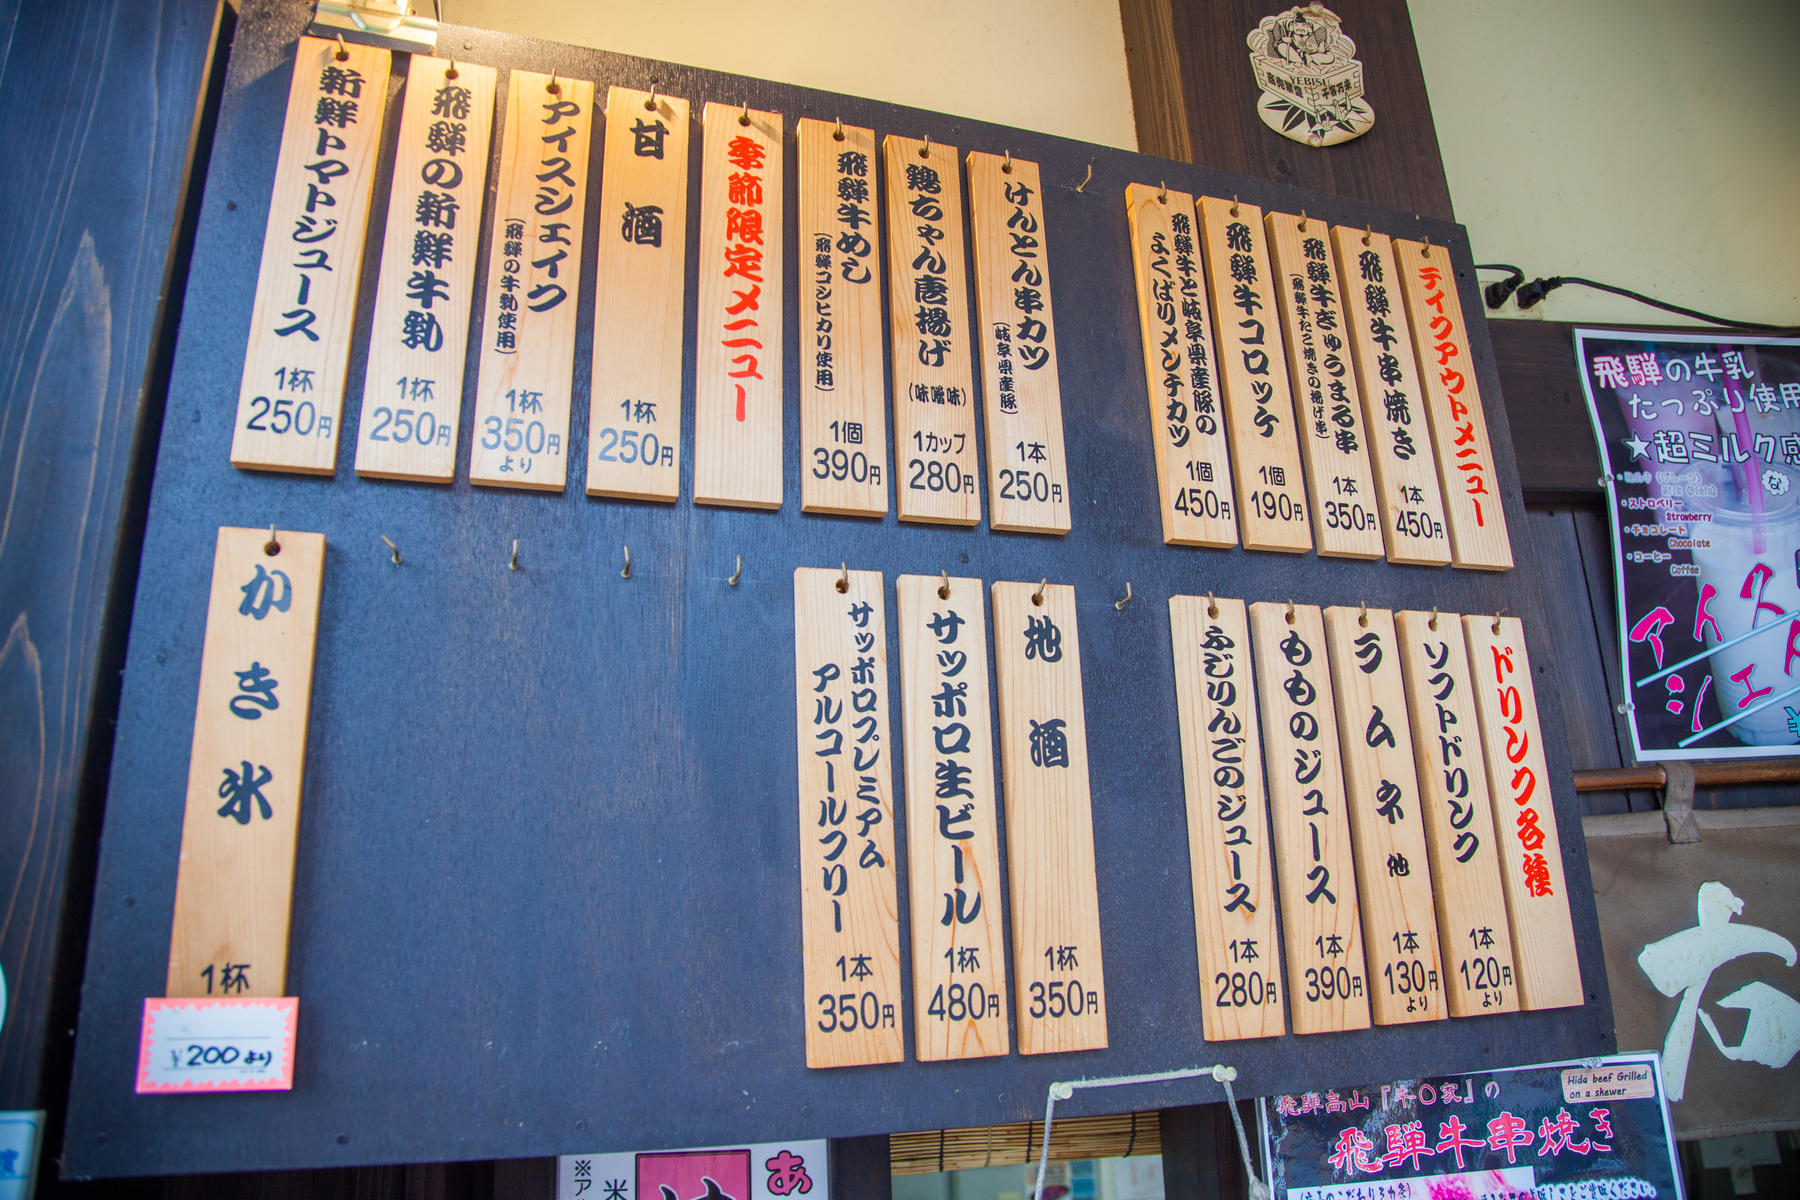 テイクアウトメニュー
飛騨牛串焼き
1本
450円
飛騨牛ぎゅうまる串
(飛騨牛たこ焼きの揚げ串)
1本
350円
飛騨牛コロッケ
1個
190円
飛騨牛と岐阜県産豚の
よくばりメンチカツ
1個
450円
けんとん串カツ
(岐阜県産豚)
1本
250円
鶏ちゃん唐揚げ
(味噌味)
1カップ
280円
飛騨牛めし
(飛騨コシヒカリ使用)
1個
390円
季節限定メニュー
甘酒
1杯
250円
アイスシェイク
(飛騨の牛乳使用)
1杯
350円
より
飛騨の新鮮牛乳
1杯
250円
新鮮トマトジュース
1杯
250円
ドリンク各種
ソフトドリンク
1本
120円
より
ラムネ 他
1本
130円
より
もものジュース
1本
390円
ふじりんごのジュース
1本
280円
地酒
1杯
350円
サッポロ生ビール
1杯
480円
サッポロプレミアム
アルコールフリー
1本
350円
かき氷
1杯
¥200より
YEBISU
商売繁盛
千客万来
飛騨の牛乳
たっぷり使用
★超ミルク感
な
・ストロベリー
Strawberry
・チョコレート
Chocolate
・コーヒー
Coffee
アイスク
シェイ
右
Hida beef Grilled
on a skewer
飛騨高山『牛〇家』の
飛騨牛串焼き
あ
※ア
米